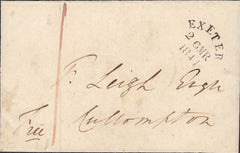 EXETER
26MR
1841
F. Leigh Esqr
Cullompton
Free